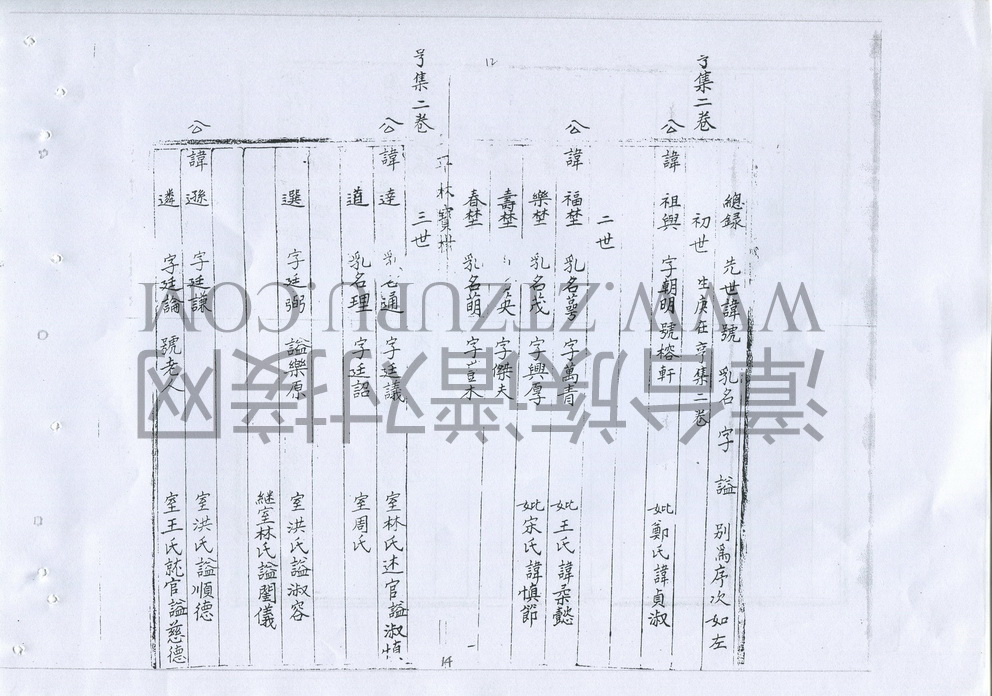 12
亨集二卷
總錄 先世諱號 乳名 字 謚 別為序次如左
初世 生庚在亨集二卷
公 諱 祖興 字朝明 號榕軒 妣鄭氏諱貞淑
二世
公 諱 福埜 乳名萼 字萬青 妣王氏諱柔懿
樂埜 乳名茂 字興厚 妣宋氏諱慎節
壽埜 英 字傑夫
春埜 乳名萌 字
林寶樹
亨集二卷
三世
公 諱 達 通 字廷議 室林氏述官謚淑慎
道 乳名理 字廷詔 室周氏
選 字廷弼 謚樂原 室洪氏謚淑容
継室林氏謚閨儀
公 諱 遜 字廷謙 室洪氏謚順德
遴 字廷論 號老人 室王氏就官謚慈德
14
WWW.ZTZUPU.COM
漳台族谱对接网